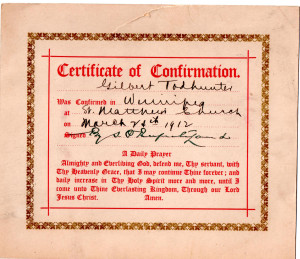 Certificate of Confirmation.
Gilbert Todhunter
Was Confirmed in Winnipeg
at St. Matthews Church
on March 28th 1912
Signed
A Daily Prayer
Almighty and Everliving God, defend me, Thy servant, with
Thy Heavenly Grace, that I may continue Thine forever; and
daily increase in Thy Holy Spirit more and more, until I
come unto Thine Everlasting Kingdom, Through our Lord
Jesus Christ. Amen.